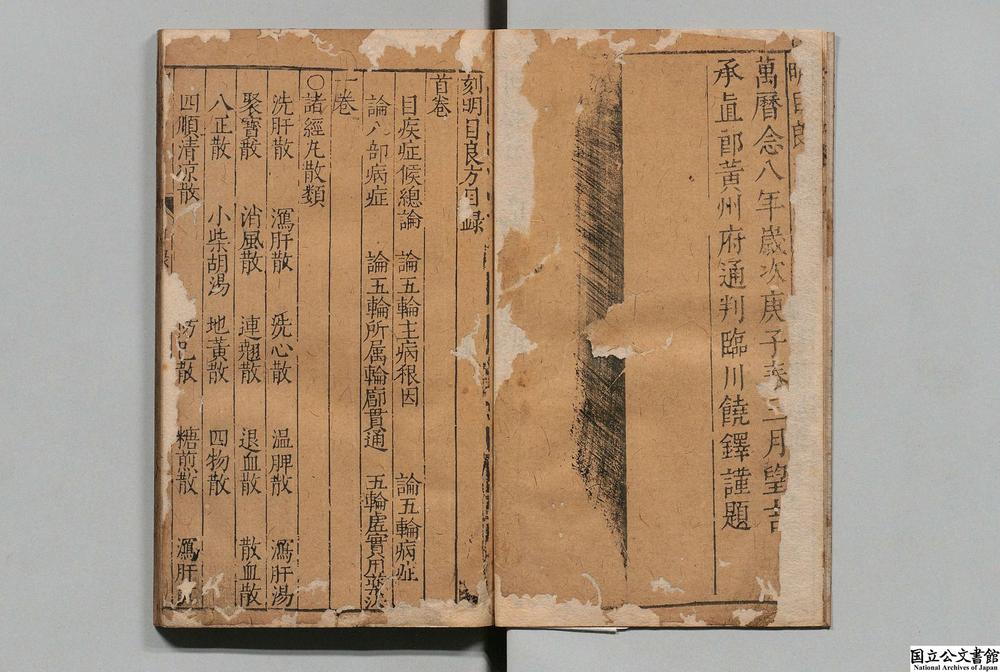 明目良
萬曆念八年歲次庚子春三月望吉
承直郎黃州府通判臨川饒鐸謹題
刻明目良方目録
首卷
目疾症候總論 論五輪主病根因 論五輪病症
論八部病症 論五輪所属輪廓貫通 五輪虚實用藥法
一卷
○諸經丸散類
洗肝散 瀉肝散 洗心散 温脾散 瀉肝湯
聚寳散 消風散 連翹散 退血散 散血散
八正散 小柴胡湯 地黄散 四物散
四順清凉散 防已散 糖煎散 瀉肝
国立公文書館
National Archives of Japan